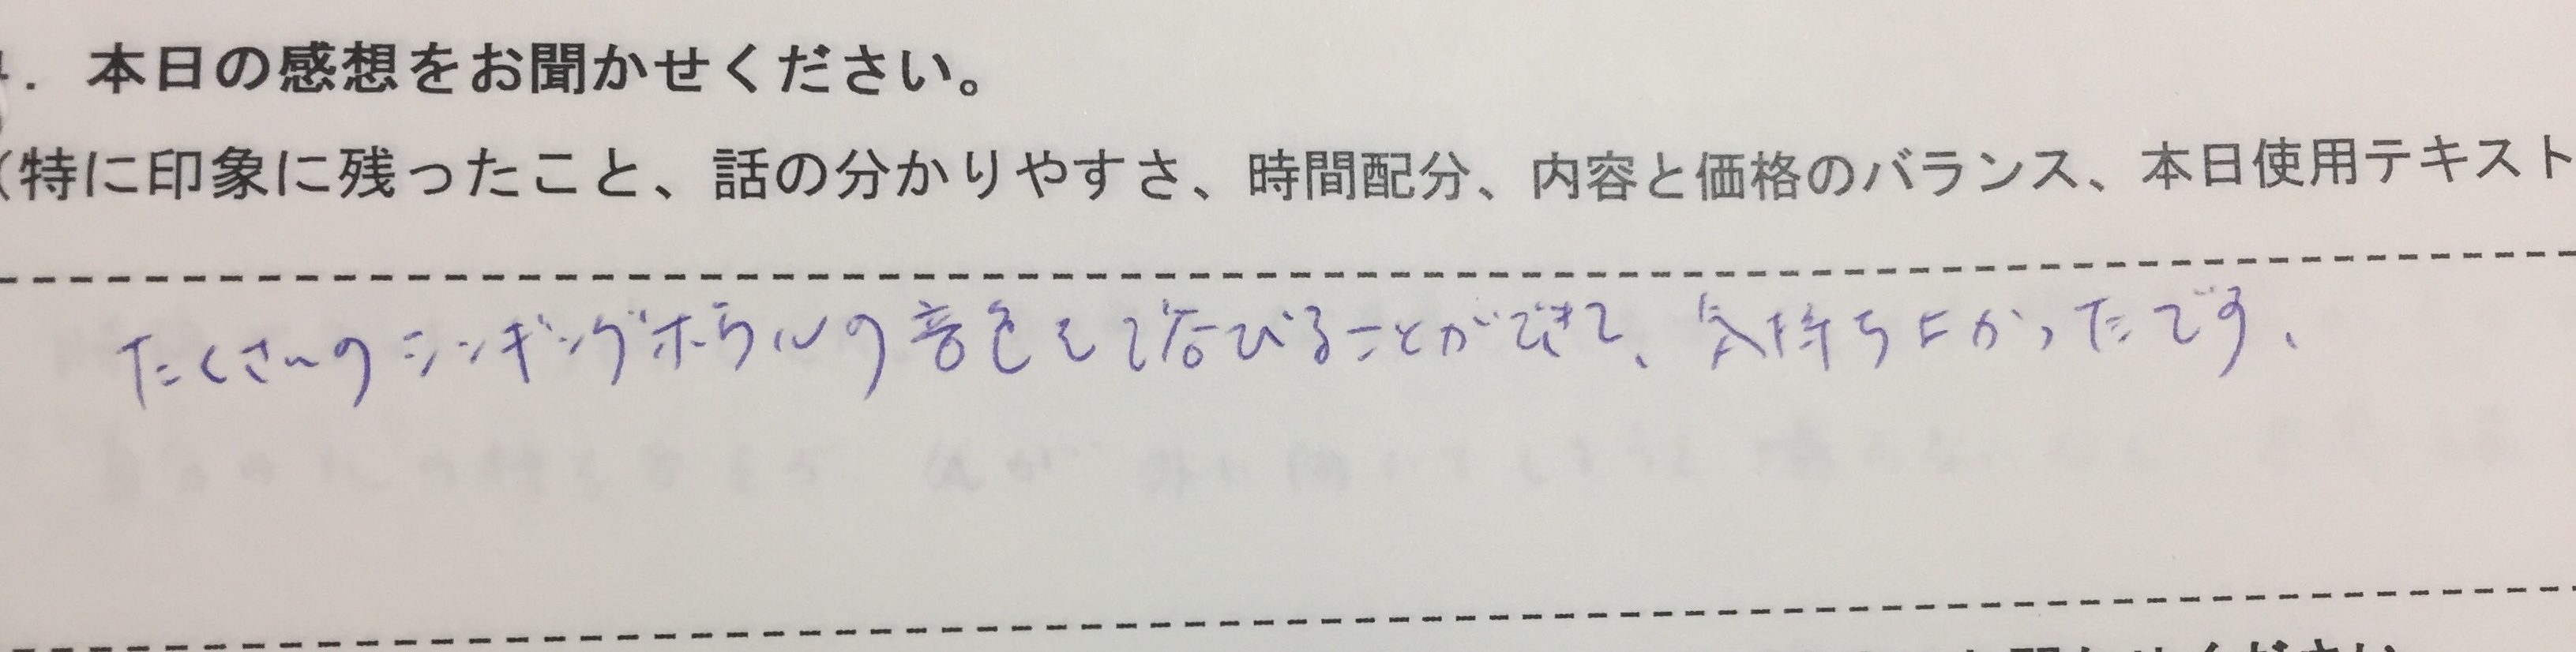 . 本日の感想をお聞かせください。
(特に印象に残ったこと、話の分かりやすさ、時間配分、内容と価格のバランス、本日使用テキスト
たくさんのシンギングボウルの音色を浴びることができて、気持ちよかったです、